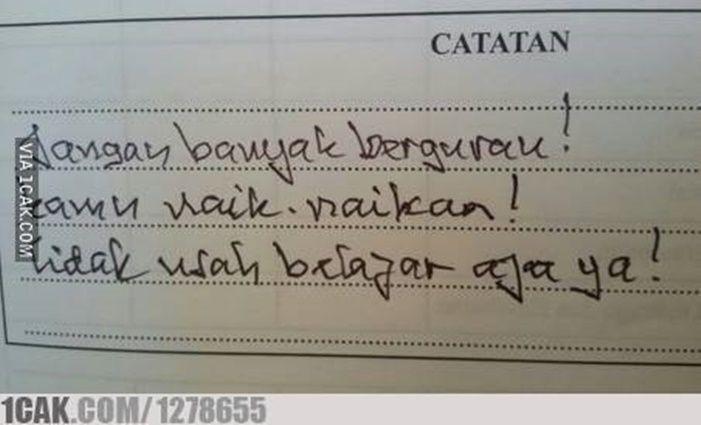 CATATAN
Jangan banyak bergurau!
kamu naik-naikan!
tidak usah belajar aja ya!
VIA 1CAK.COM
1CAK.COM/1278655